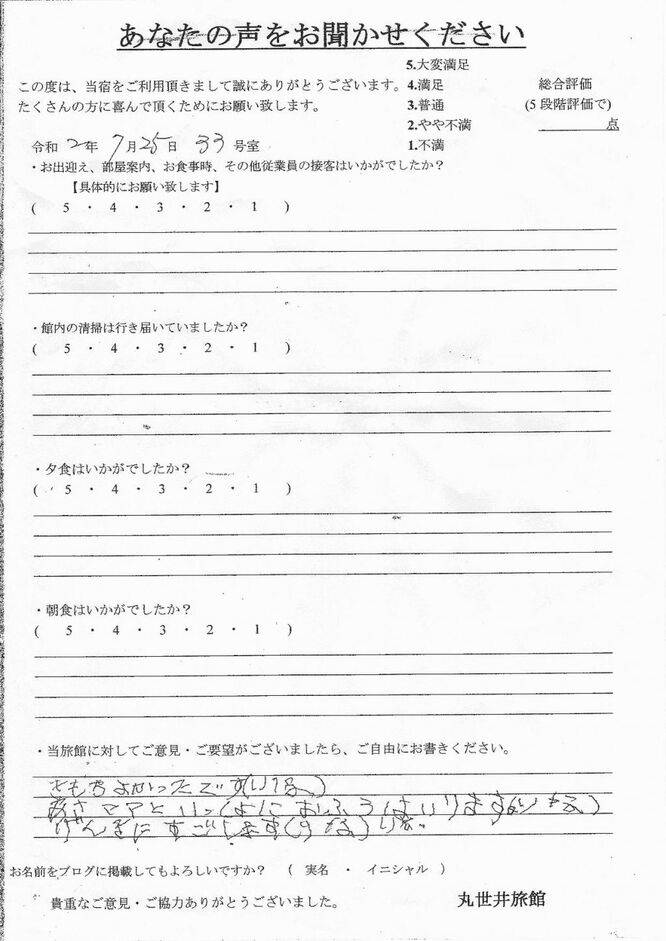 あなたの声をお聞かせください
5.大変満足
この度は、当宿をご利用頂きまして誠にありがとうございます。 4.満足 総合評価
たくさんの方に喜んで頂くためにお願い致します。 3.普通 (5段階評価で)
2.やや不満 点
令和 2年 7月25日 33号室 1.不満
・お出迎え、部屋案内、お食事時、その他従業員の接客はいかがでしたか?
【具体的にお願い致します】
( 5 ・ 4 ・ 3 ・ 2 ・ 1 )
・館内の清掃は行き届いていましたか?
( 5 ・ 4 ・ 3 ・ 2 ・ 1 )
・夕食はいかがでしたか?
( 5 ・ 4 ・ 3 ・ 2 ・ 1 )
・朝食はいかがでしたか?
( 5 ・ 4 ・ 3 ・ 2 ・ 1 )
・当旅館に対してご意見・ご要望がございましたら、ご自由にお書きください。
きもちよかったです
ママといっしょにおふろはいります
げんきにすごします
お名前をブログに掲載してもよろしいですか? ( 実名 ・ イニシャル )
貴重なご意見・ご協力ありがとうございました。 丸世井旅館